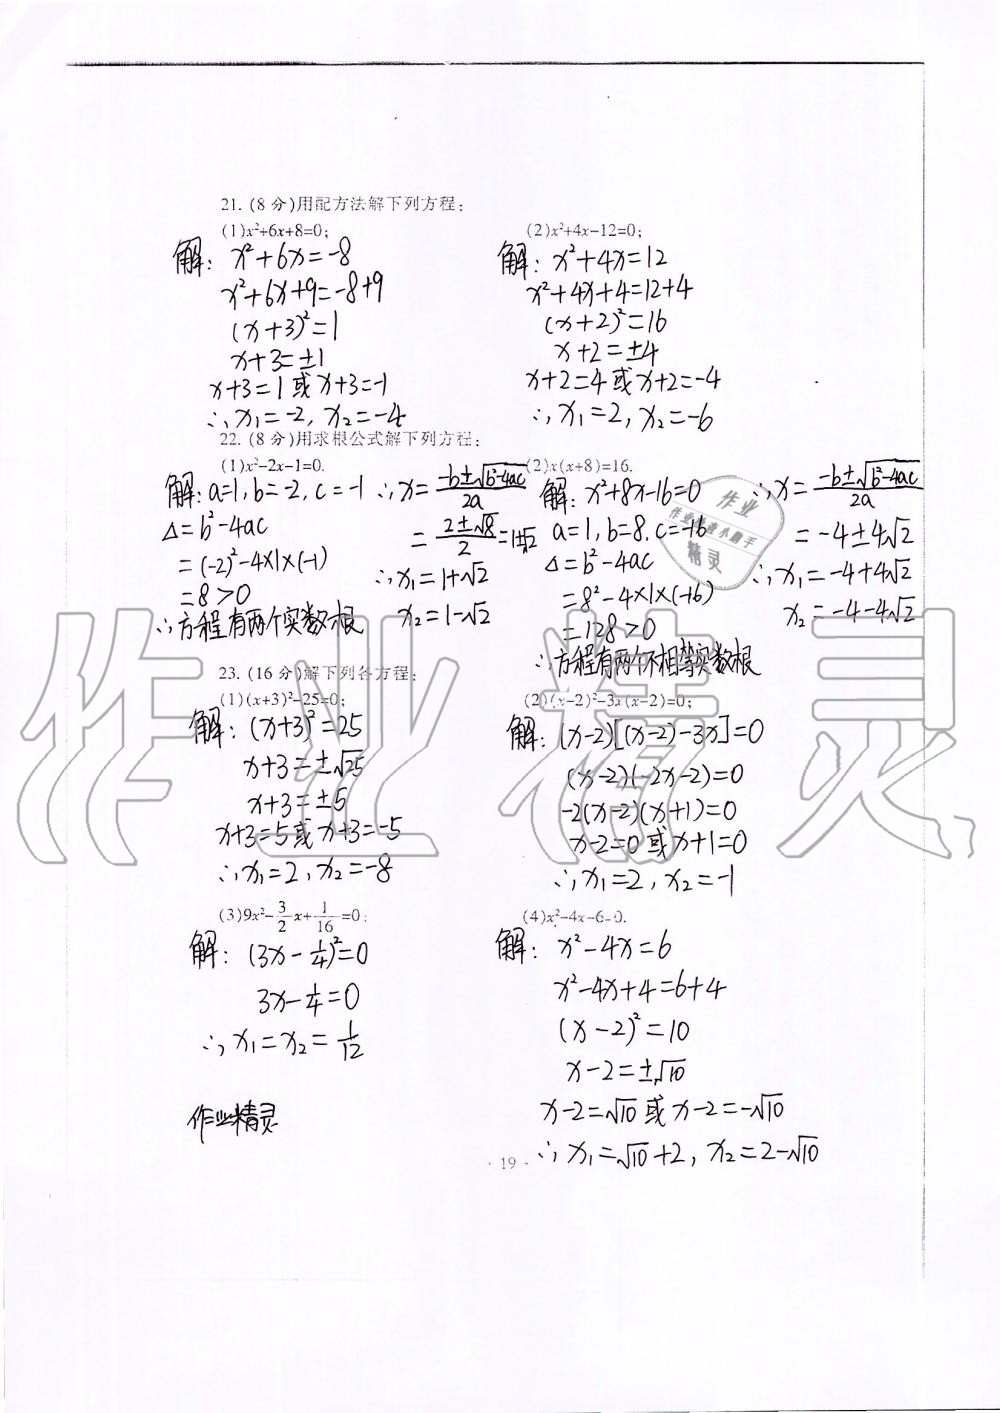 21. (8 分)用配方法解下列方程:
(1)x²+6x+8=0;
解: x²+6x=-8
x²+6x+9=-8+9
(x+3)²=1
x+3=±1
x+3=1或x+3=-1
∴x₁=-2, x₂=-4
(2)x²+4x-12=0;
解: x²+4x=12
x²+4x+4=12+4
(x+2)²=16
x+2=±4
x+2=4或x+2=-4
∴x₁=2, x₂=-6
22. (8 分)用求根公式解下列方程:
(1)x²-2x-1=0.
解: a=1, b=-2, c=-1
Δ=b²-4ac
=(-2)²-4×1×(-1)
=8>0
∴方程有两个实数根
∴x=(-b±√(b²-4ac))/2a
=(2±√8)/2=1±√2
∴x₁=1+√2
x₂=1-√2
(2)x(x+8)=16.
解: x²+8x-16=0
a=1, b=8, c=-16
Δ=b²-4ac
=8²-4×1×(-16)
=128>0
∴方程有两个不相等实数根
∴x=(-b±√(b²-4ac))/2a
=-4±4√2
∴x₁=-4+4√2
x₂=-4-4√2
23. (16 分)解下列各方程:
(1)(x+3)²-25=0;
解: (x+3)²=25
x+3=±√25
x+3=±5
x+3=5或x+3=-5
∴x₁=2, x₂=-8
(2)(x-2)²-3x(x-2)=0;
解: (x-2)[(x-2)-3x]=0
(x-2)(-2x-2)=0
-2(x-2)(x+1)=0
x-2=0或x+1=0
∴x₁=2, x₂=-1
(3)9x²-3/2x+1/16=0;
解: (3x-1/4)²=0
3x-1/4=0
∴x₁=x₂=1/12
作业精灵
(4)x²-4x-6=0.
解: x²-4x=6
x²-4x+4=6+4
(x-2)²=10
x-2=±√10
x-2=√10或x-2=-√10
∴x₁=√10+2, x₂=2-√10
· 19 ·
作业
精灵
作业精灵